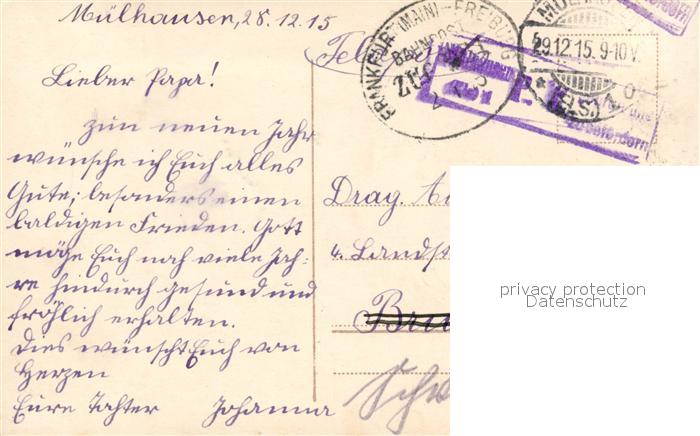 Mülhausen, 28.12.15
Lieber Papa!
Zum neuen Jahr
wünsche ich Euch alles
Gute; besonders einen
baldigen Frieden. Gott
möge Euch noch viele Jah-
re hindurch gesund und
fröhlich erhalten.
Dies wünscht Euch von
Herzen
Eure Tochter Johanna
FRANKFURT (MAIN)-FREIBURG
BAHNPOST
ZUG
29.12.15. 9-10 V.
(ELS.) 1
Drag.
4. Landst
privacy protection
Datenschutz